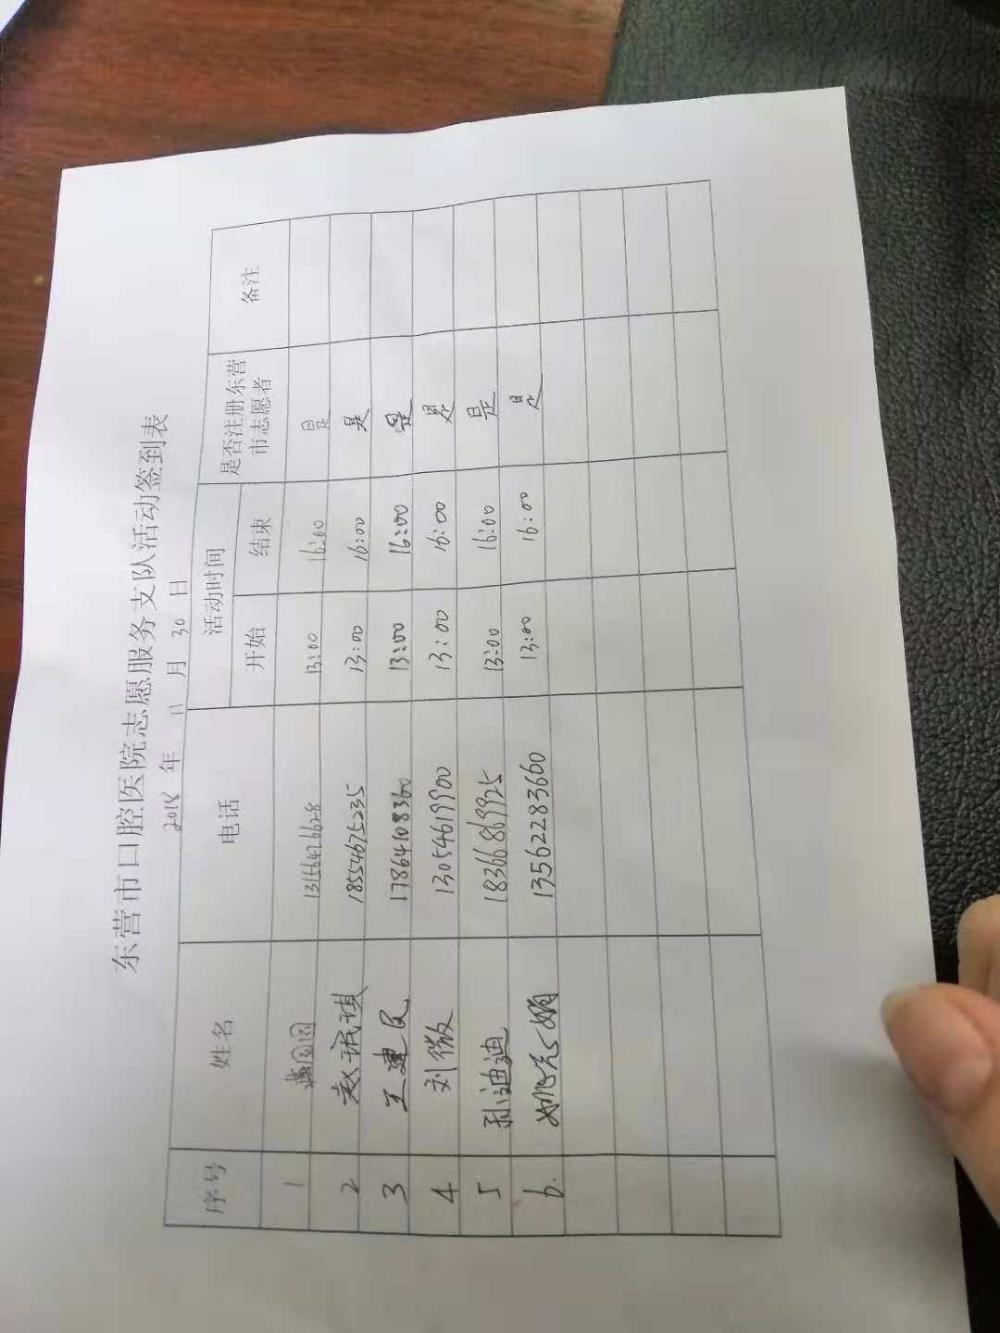 东营市口腔医院志愿服务支队活动签到表
2018 年 11 月 30 日
序号 姓名 电话 活动时间 是否注册东营市志愿者 备注
开始 结束
1 13:00 16:00 是
2 赵诚琪 18554675235 13:00 16:00 是
3 王建民 17864108360 13:00 16:00 是
4 刘微 13054619900 13:00 16:00 是
5 孙迪迪 18366869925 13:00 16:00 是
6. 13562283660 13:00 16:00 是